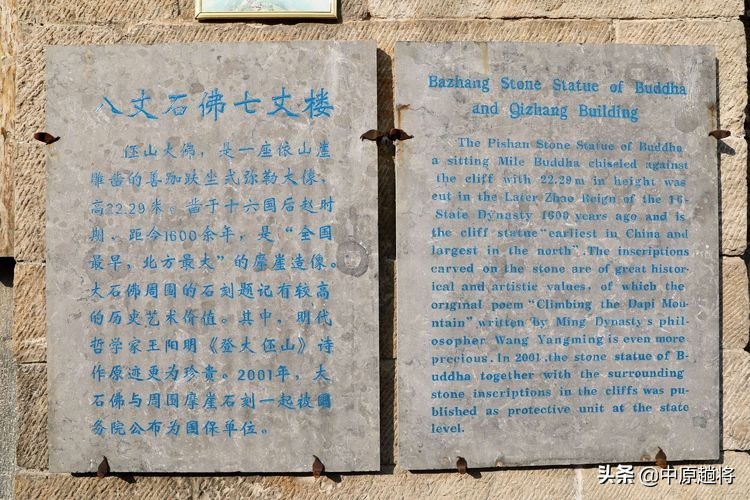 八丈石佛七丈楼
伾山大佛，是一座依山崖
雕凿的善珈趺坐式弥勒大像，
高22.29米。凿于十六国后赵时
期，距今1600余年，是“全国
最早，北方最大”的摩崖造像。
大石佛周围的石刻题记有较高
的历史艺术价值。其中，明代
哲学家王阳明《登大伾山》诗
作原迹更为珍贵。2001年，大
石佛与周围摩崖石刻一起被国
务院公布为国保单位。
Bazhang Stone Statue of Buddha
and Qizhang Building
The Pishan Stone Statue of Buddha
a sitting Mile Buddha chiseled against
the cliff with 22.29 m in height was
cut in the Later Zhao Reign of the 16-
State Dynasty 1600 years ago and is
the cliff statue “earliest in China and
largest in the north”. The inscriptions
carved on the stone are of great histor-
ical and artistic values, of which the
original poem “Climbing the Dapi Mou-
ntain” written by Ming Dynasty's phil-
osopher Wang Yangming is even more
precious. In 2001, the stone statue of B-
uddha together with the surrounding
stone inscriptions in the cliffs was pu-
blished as protective unit at the state
level.
头条 @中原趟将